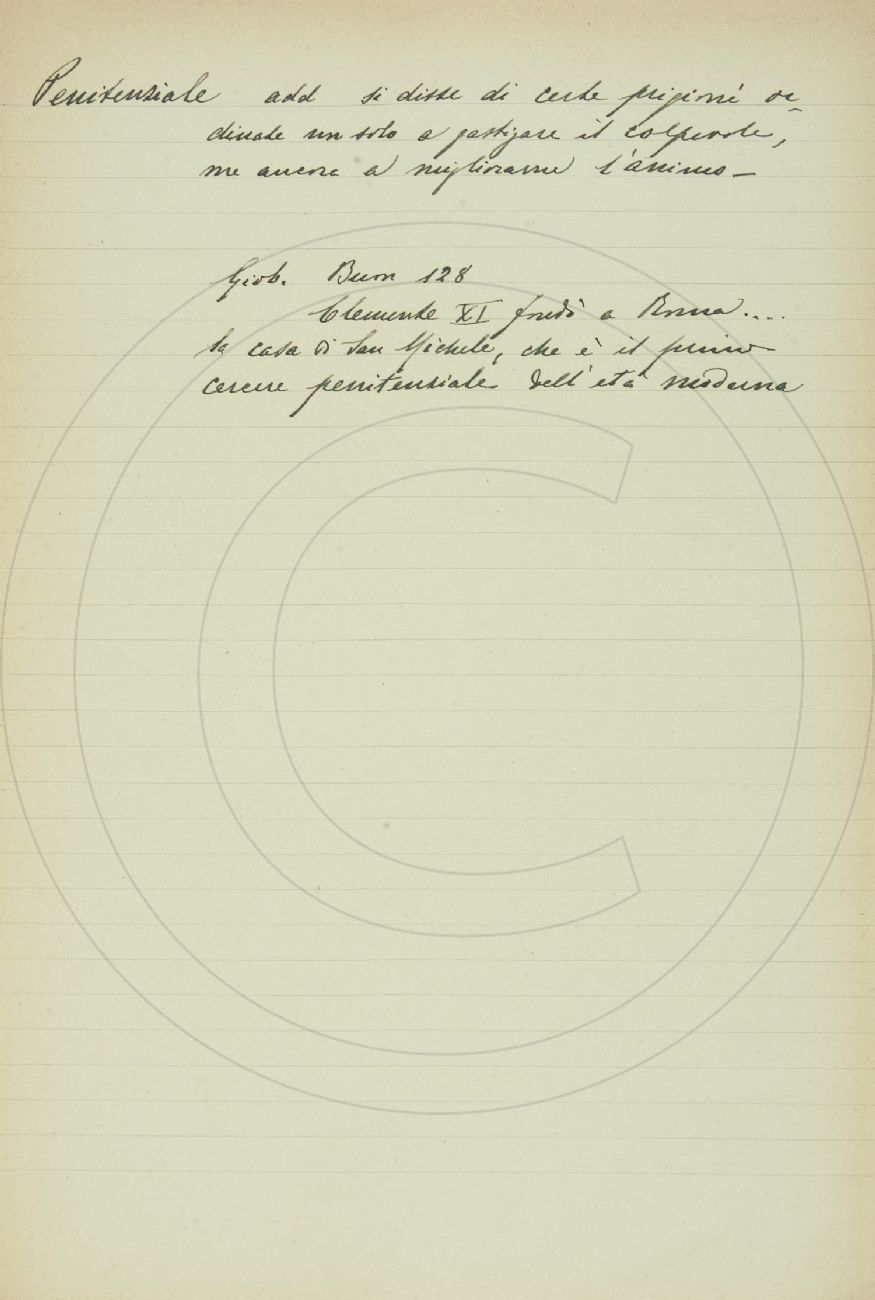 Penitenziale add si disse di certe prigioni or-
dinate non solo a gastigare il colpevole,
ma ancora a migliorarne l'animo —
Giob. Buon 128
Clemente XI fondò a Roma....
la casa di San Michele, che è il primo
carcere penitenziale dell'età moderna